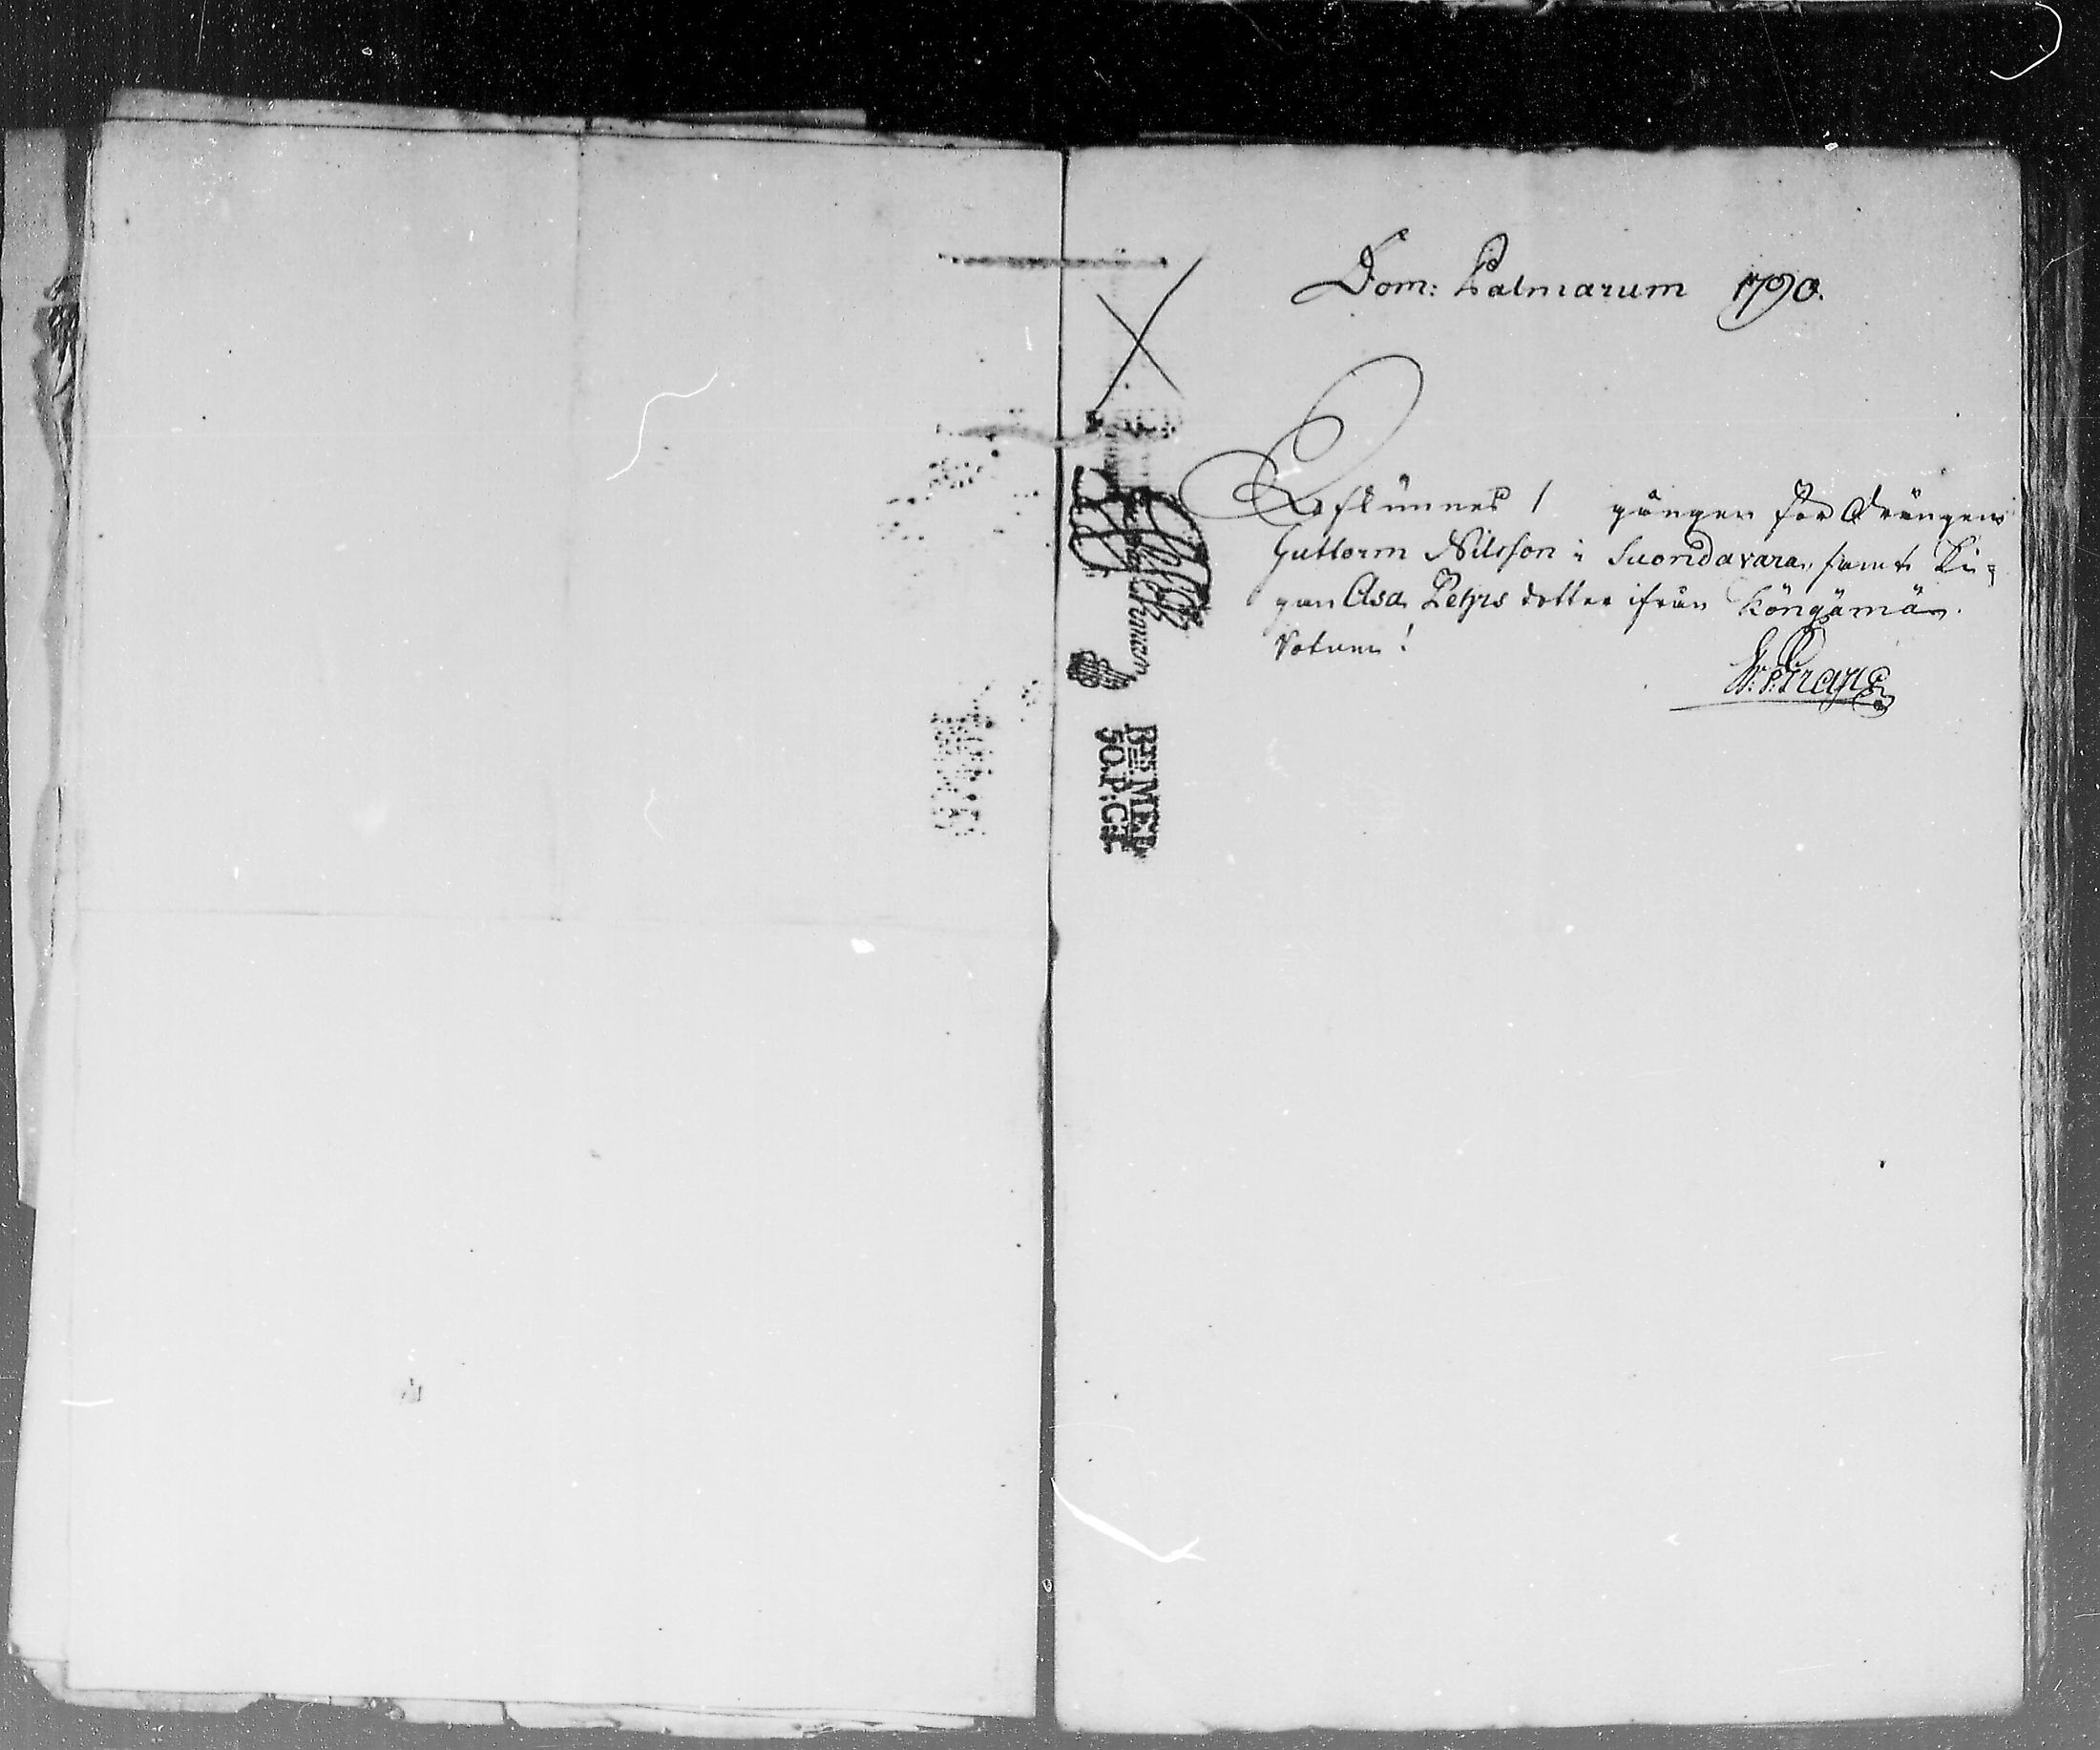 Dom: Palmarum 1790.
Afkunnes 1 gången för Drängen
Guttorm Nilsson i Suondavara, samt Pi=
gan Asa Pehrs dotter ifrån Köngämä.
Votum!
50.P:Ct.